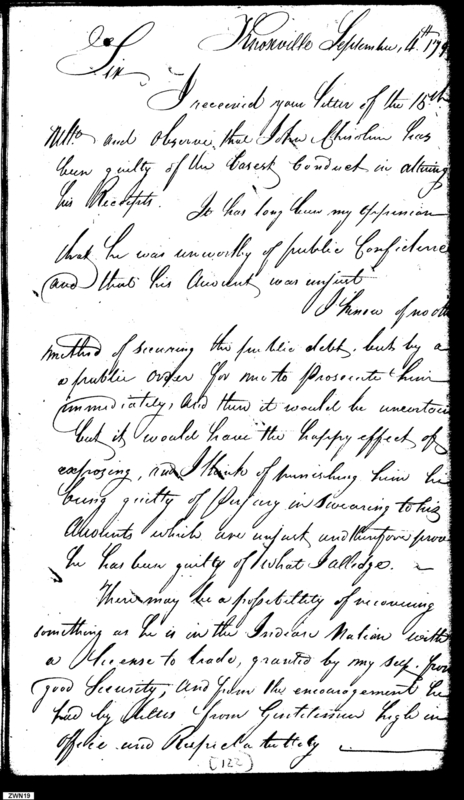 Knoxville September, 4th 179
Sir
I received your letter of the 15th
Ulto and observe that John Chisolm has
been guilty of the basest Conduct in altering
his Receipts. It has long been my oppinion
that he was unworthy of public Confidence
and that his Account was unjust
I know of no oth
method of securing the public debt, but by a
a public order for me to prosecute him
immediately, and then it would be uncertain
but it would have the happy effect of
exposing, and I think of punishing him he
being guilty of Perjury in swearing to his
Accounts which are unjust and therefore prove
he has been guilty of what I alledge.
There may be a possibility of recovering
something as he is in the Indian Nation with
a license to trade, granted by my self from
good Security, and from the encouragement he
had by letters from Gentlemen high in
office and Respectability
[122]
ZWN19